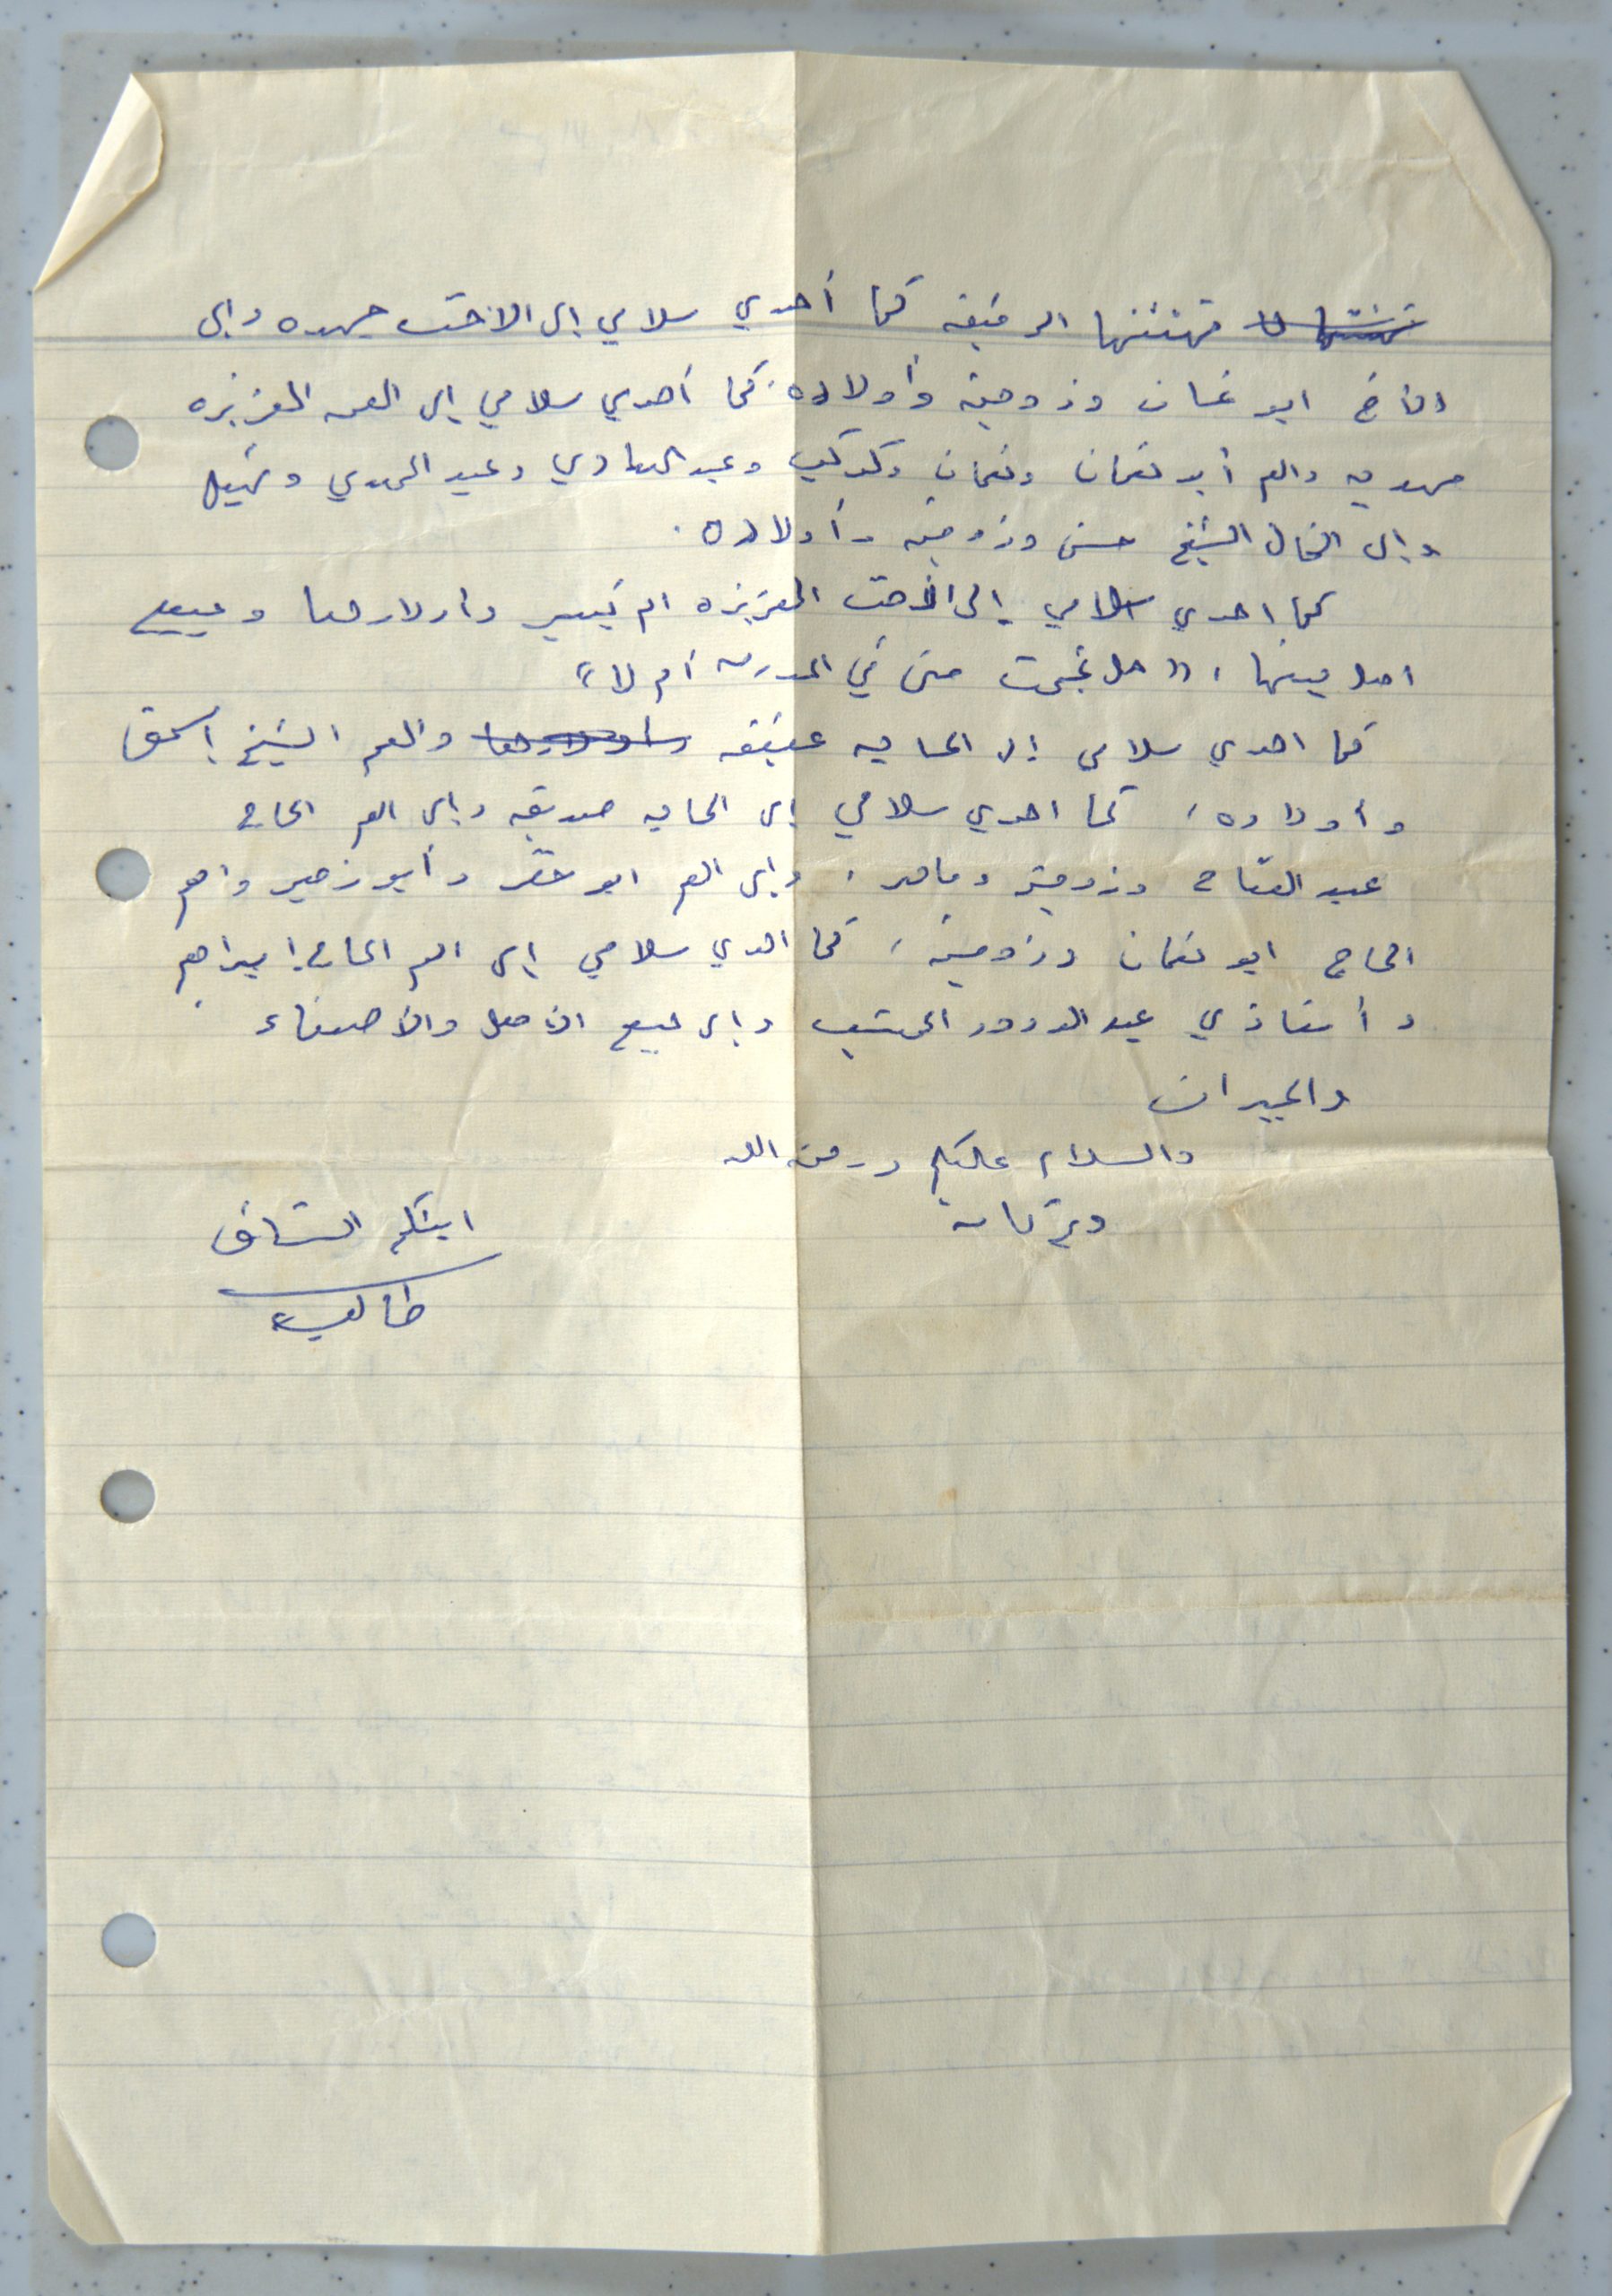 تهنئتها الرقيقه كما أهدي سلامي إلى الاخت جهده وإلى
الأخ ابو غسان وزوجته وأولاده. كما أهدي سلامي إلى العمه العزيزه
مهديه والعم أبو نعمان ونعمان وكوكب وعبد الهادي وعبد المهدي ونهيل
وإلى الخال الشيخ حسن وزوجته وأولاده.
كما اهدي سلامي إلى الأخت العزيزه ام تيسير وأولادها وجميع
اهل بيتها، "هل نجحت منى في المدرسه أم لا"
كما اهدي سلامي إلى الحاجه عفيفه والعم الشيخ إسحق
وأولاده، كما اهدي سلامي إلى الحاجه صديقه وإلى العم الحاج
عبد الفتاح وزوجته وماهر، وإلى العم ابو وأبو زهير واهم
الحاج ابو نعمان وزوجته، كما اهدي سلامي إلى العم الحاج إبراهيم
وأستاذي عبد الودود المحتسب وإلى جميع الأهل والأصدقاء
والجيران
والسلام عليكم ورحمة الله
وبركاته
ابنكم المشتاق
طالب